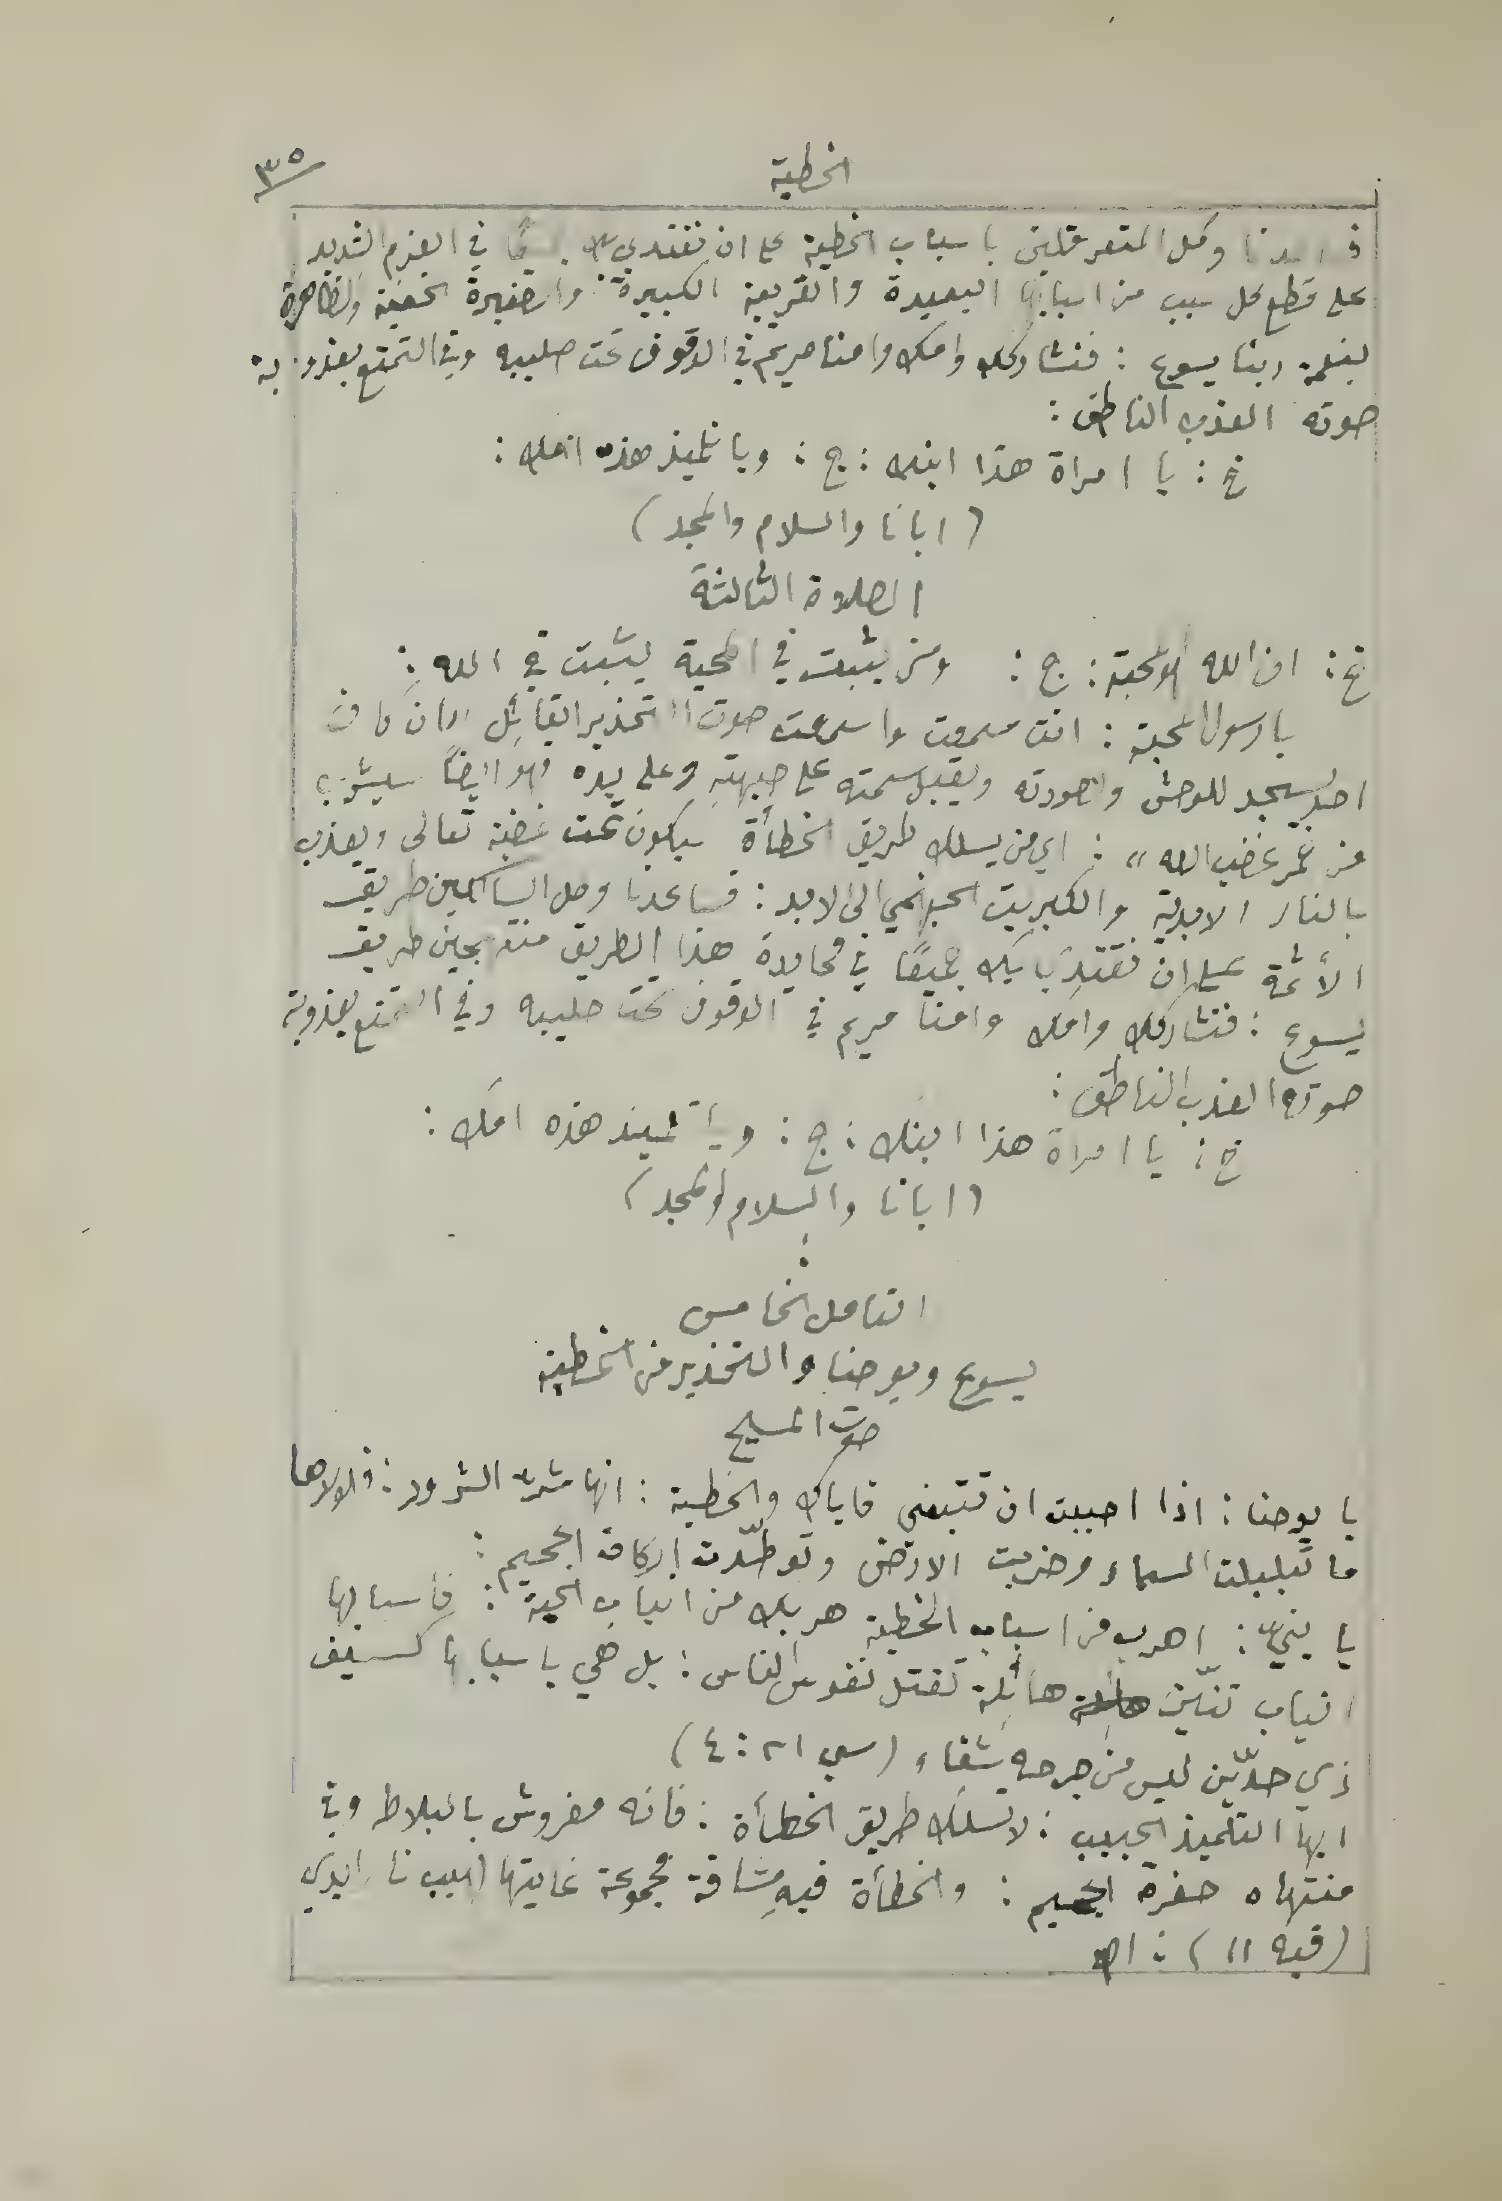 الخطية
٣٥
وكل المتعرقلين باسباب الخطية على ان نقتدي بك في العزم الشديد
على قطع كل سبب من اسبابها البعيدة والقريبة الكبيرة والصغيرة الخفية والظاهرة
بنعمة ربنا يسوع : فنشاركك وامك وامنا مريم في الوقوف تحت صليبه وفي التمتع بعذوبة
صوته العذب الناطق :
خ : يا امراة هذا ابنك : ج : ويا تلميذ هذه امك :
( ابانا والسلام والمجد )
الصلاة الثالثة
خ : ان الله هو المحبة : ج : ومن يثبت في المحبة يثبت في الله :
يا رسول المحبة : انت سمعت واسمعت صوت التحذير القائل " ان كان
احد يسجد للوحش ولصورته ويقبل سمته على جبهته وعلى يده فهو ايضًا سيشرب
من خمر غضب الله " : اي من يسلك طريق الخطأة سيكون تحت غضبه تعالى ويعذب
بالنار الابدية والكبريت الجهنمي الى الابد : فساعدنا وكل السالكين طريق
الأثمة على ان نقتدي بك جميعًا في محايدة هذا الطريق منتهجين طريق
يسوع : فنشاركك وامك وامنا مريم في الوقوف تحت صليبه وفي التمتع بعذوبة
صوته العذب الناطق :
خ : يا امراة هذا ابنك : ج : ويا تلميذ هذه امك :
( ابانا والسلام والمجد )
التامل الخامس
يسوع ويوحنا والتحذير من الخطية
صوت المسيح
يا يوحنا : اذا احببت ان تتبعني فاياك والخطية : انها شر الشرور : فلولاها
ما تبلبلت السماء وخربت الارض وتوطّدت اركان الجحيم :
يا بنيّ : اهرب من اسباب الخطية هربك من انياب الحية : فاسبابها
انياب تنّين هائلة تقتل نفوس الناس : بل هي باسبابها كسيف
ذي حدّين ليس من جرحه شفاء ( سي ٢١ : ٤ )
ايها التلميذ الحبيب : لا تسلك طريق الخطأة : فانه مفروش بالبلاط وفي
منتهاه حفرة الجحيم : والخطأة فيه مشاقة مجموعة غايتها لهيب نار ابدي
( فيه ١١ ) :